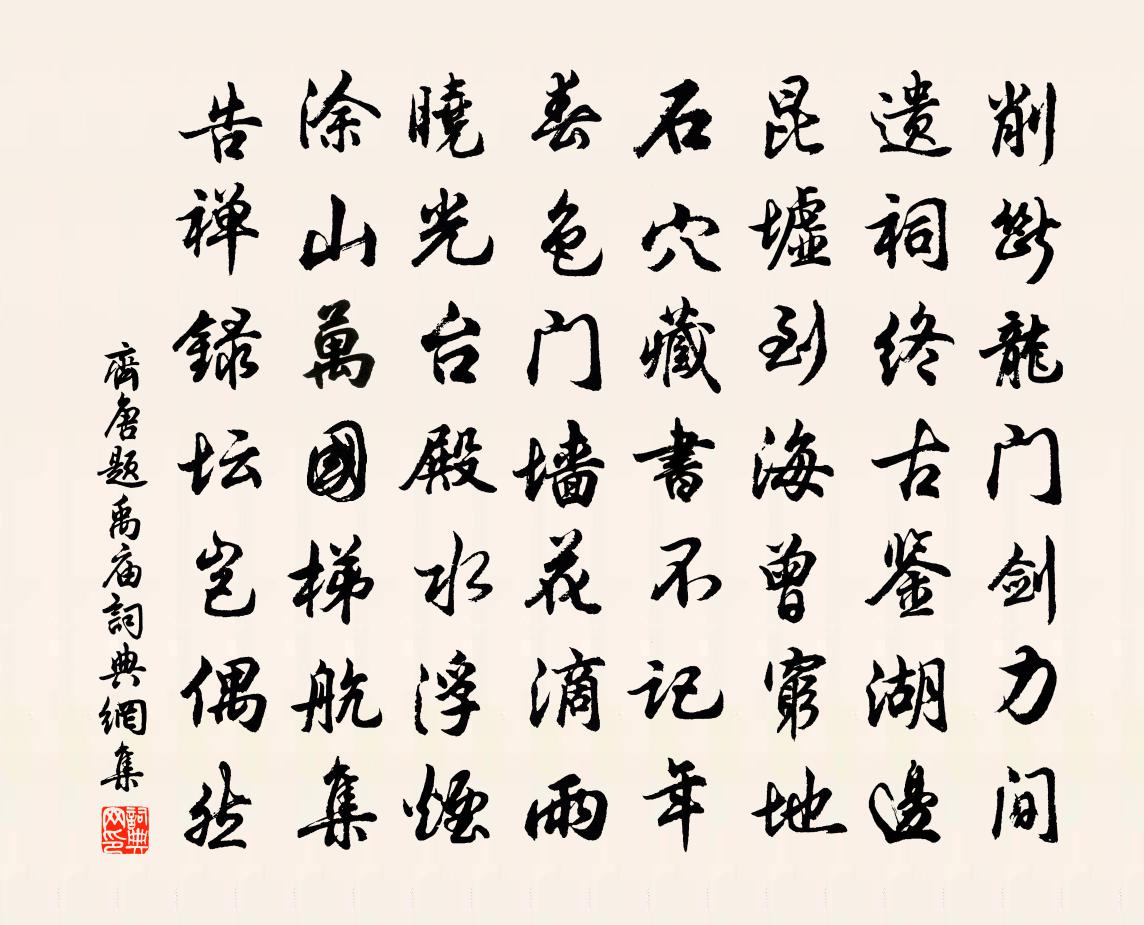 削斷龍门剑力间
遗祠终古鉴湖邊
昆墟到海曾窮地
石穴藏書不记年
春色门墙花滴雨
曉光台殿水浮煙
涂山萬國梯航集
告禅録坛岂偶然
齊唐题禹庙詞典網集
詞典网印